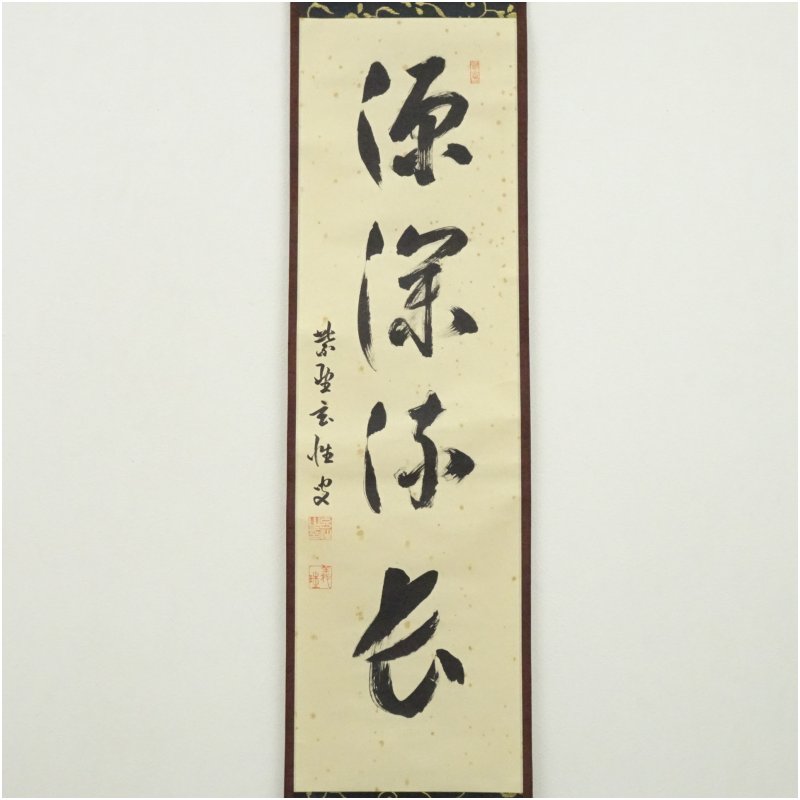 源深流長
紫野玄性叟